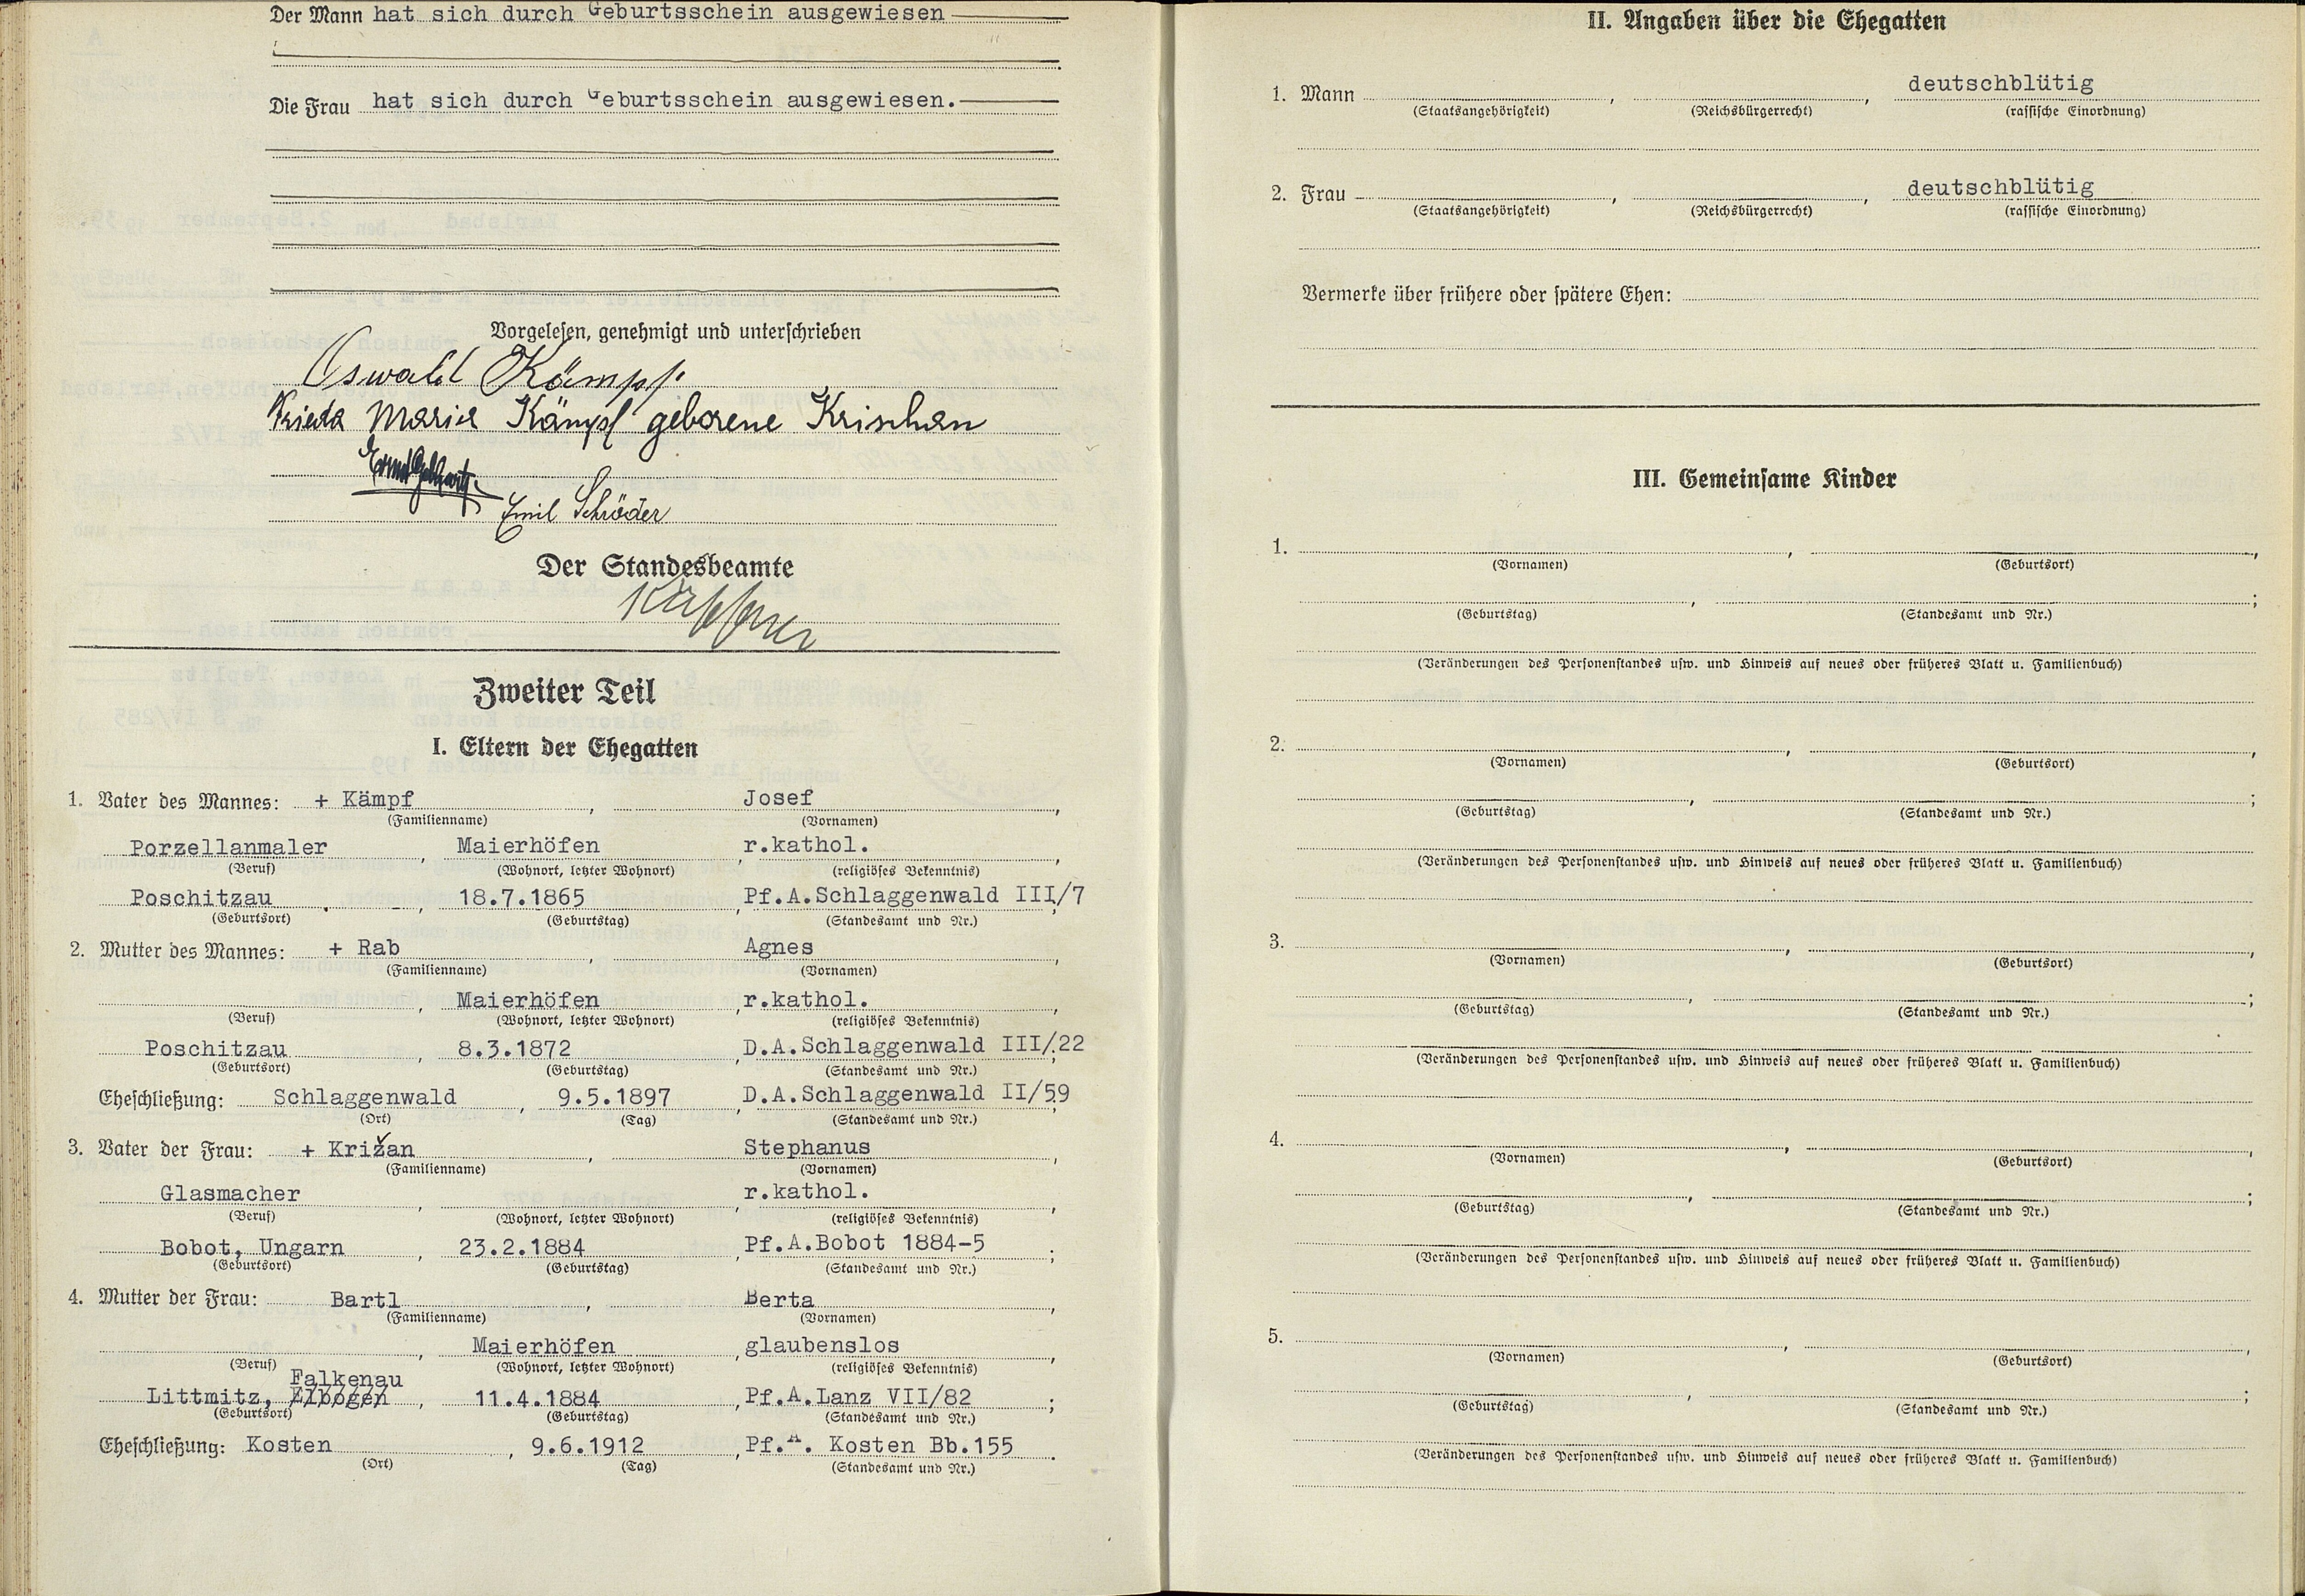 Der Mann hat sich durch Geburtsschein ausgewiesen
Die Frau hat sich durch Geburtsschein ausgewiesen.
Vorgelesen, genehmigt und unterschrieben
Oswald Kämpf
Frieda Maria Kämpf geborene Krischan
Emil Schröder
Der Standesbeamte
Zweiter Teil
I. Eltern der Ehegatten
1. Vater des Mannes: + Kämpf, Josef,
(Familienname) (Vornamen)
Porzellanmaler, Maierhöfen, r.kathol.,
(Beruf) (Wohnort, letzter Wohnort) (religiöses Bekenntnis)
Poschitzau, 18.7.1865, Pf.A.Schlaggenwald III/7
(Geburtsort) (Geburtstag) (Standesamt und Nr.)
2. Mutter des Mannes: + Rab, Agnes,
(Familienname) (Vornamen)
, Maierhöfen, r.kathol.,
(Beruf) (Wohnort, letzter Wohnort) (religiöses Bekenntnis)
Poschitzau, 8.3.1872, D.A.Schlaggenwald III/22;
(Geburtsort) (Geburtstag) (Standesamt und Nr.)
Eheschließung: Schlaggenwald, 9.5.1897, D.A.Schlaggenwald II/59
(Ort) (Tag) (Standesamt und Nr.)
3. Vater der Frau: + Križan, Stephanus,
(Familienname) (Vornamen)
Glasmacher, , r.kathol.,
(Beruf) (Wohnort, letzter Wohnort) (religiöses Bekenntnis)
Bobot, Ungarn, 23.2.1884, Pf.A.Bobot 1884-5;
(Geburtsort) (Geburtstag) (Standesamt und Nr.)
4. Mutter der Frau: Bartl, Berta,
(Familienname) (Vornamen)
, Maierhöfen, glaubenslos,
(Beruf) (Wohnort, letzter Wohnort) (religiöses Bekenntnis)
Falkenau
Littmitz, Elbogen, 11.4.1884, Pf.A.Lanz VII/82;
(Geburtsort) (Geburtstag) (Standesamt und Nr.)
Eheschließung: Kosten, 9.6.1912, Pf.A. Kosten Bb.155.
(Ort) (Tag) (Standesamt und Nr.)
II. Angaben über die Ehegatten
1. Mann , , deutschblütig
(Staatsangehörigkeit) (Reichsbürgerrecht) (rassische Einordnung)
2. Frau , , deutschblütig
(Staatsangehörigkeit) (Reichsbürgerrecht) (rassische Einordnung)
Vermerke über frühere oder spätere Ehen:
III. Gemeinsame Kinder
1. , ,
(Vornamen) (Geburtsort)
, ;
(Geburtstag) (Standesamt und Nr.)
(Veränderungen des Personenstandes usw. und Hinweis auf neues oder früheres Blatt u. Familienbuch)
2. , ,
(Vornamen) (Geburtsort)
, ;
(Geburtstag) (Standesamt und Nr.)
(Veränderungen des Personenstandes usw. und Hinweis auf neues oder früheres Blatt u. Familienbuch)
3. , ,
(Vornamen) (Geburtsort)
, ;
(Geburtstag) (Standesamt und Nr.)
(Veränderungen des Personenstandes usw. und Hinweis auf neues oder früheres Blatt u. Familienbuch)
4. , ,
(Vornamen) (Geburtsort)
, ;
(Geburtstag) (Standesamt und Nr.)
(Veränderungen des Personenstandes usw. und Hinweis auf neues oder früheres Blatt u. Familienbuch)
5. , ,
(Vornamen) (Geburtsort)
, ;
(Geburtstag) (Standesamt und Nr.)
(Veränderungen des Personenstandes usw. und Hinweis auf neues oder früheres Blatt u. Familienbuch)